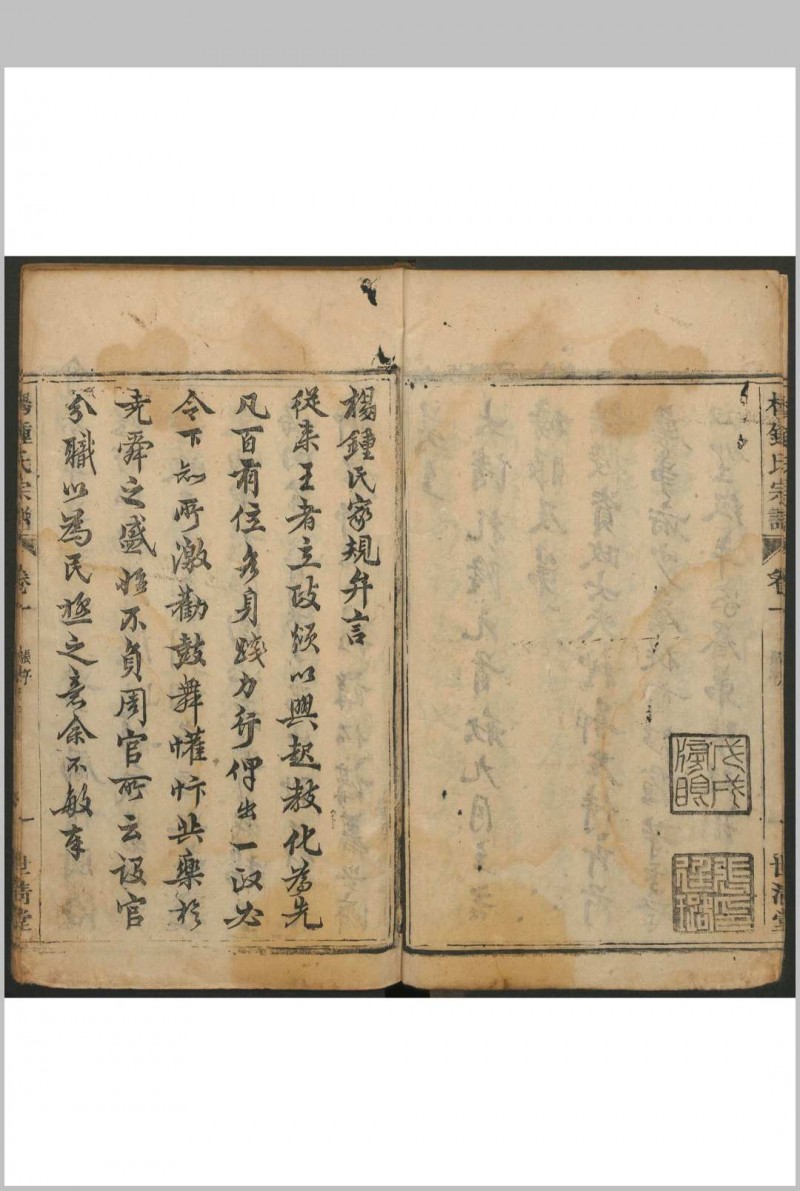 楊鍾氏宗譜
卷一
世濟堂
戊戌
榜眼
楊鍾氏家規弁言
從来王者立政須以興起教化為先
凡百有位务身踐力行俾出一政必
令下如所激勸鼓舞懽忭共樂於
尭舜之盛始不負周官所云設官
分職以為民極之意余不敏奉
楊鍾氏宗譜
卷一
一
世濟堂